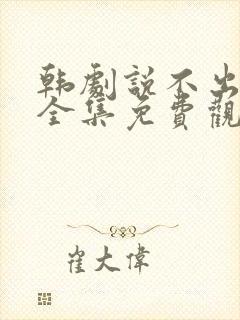 韩劇説不出
全集免費觀
崔大偉